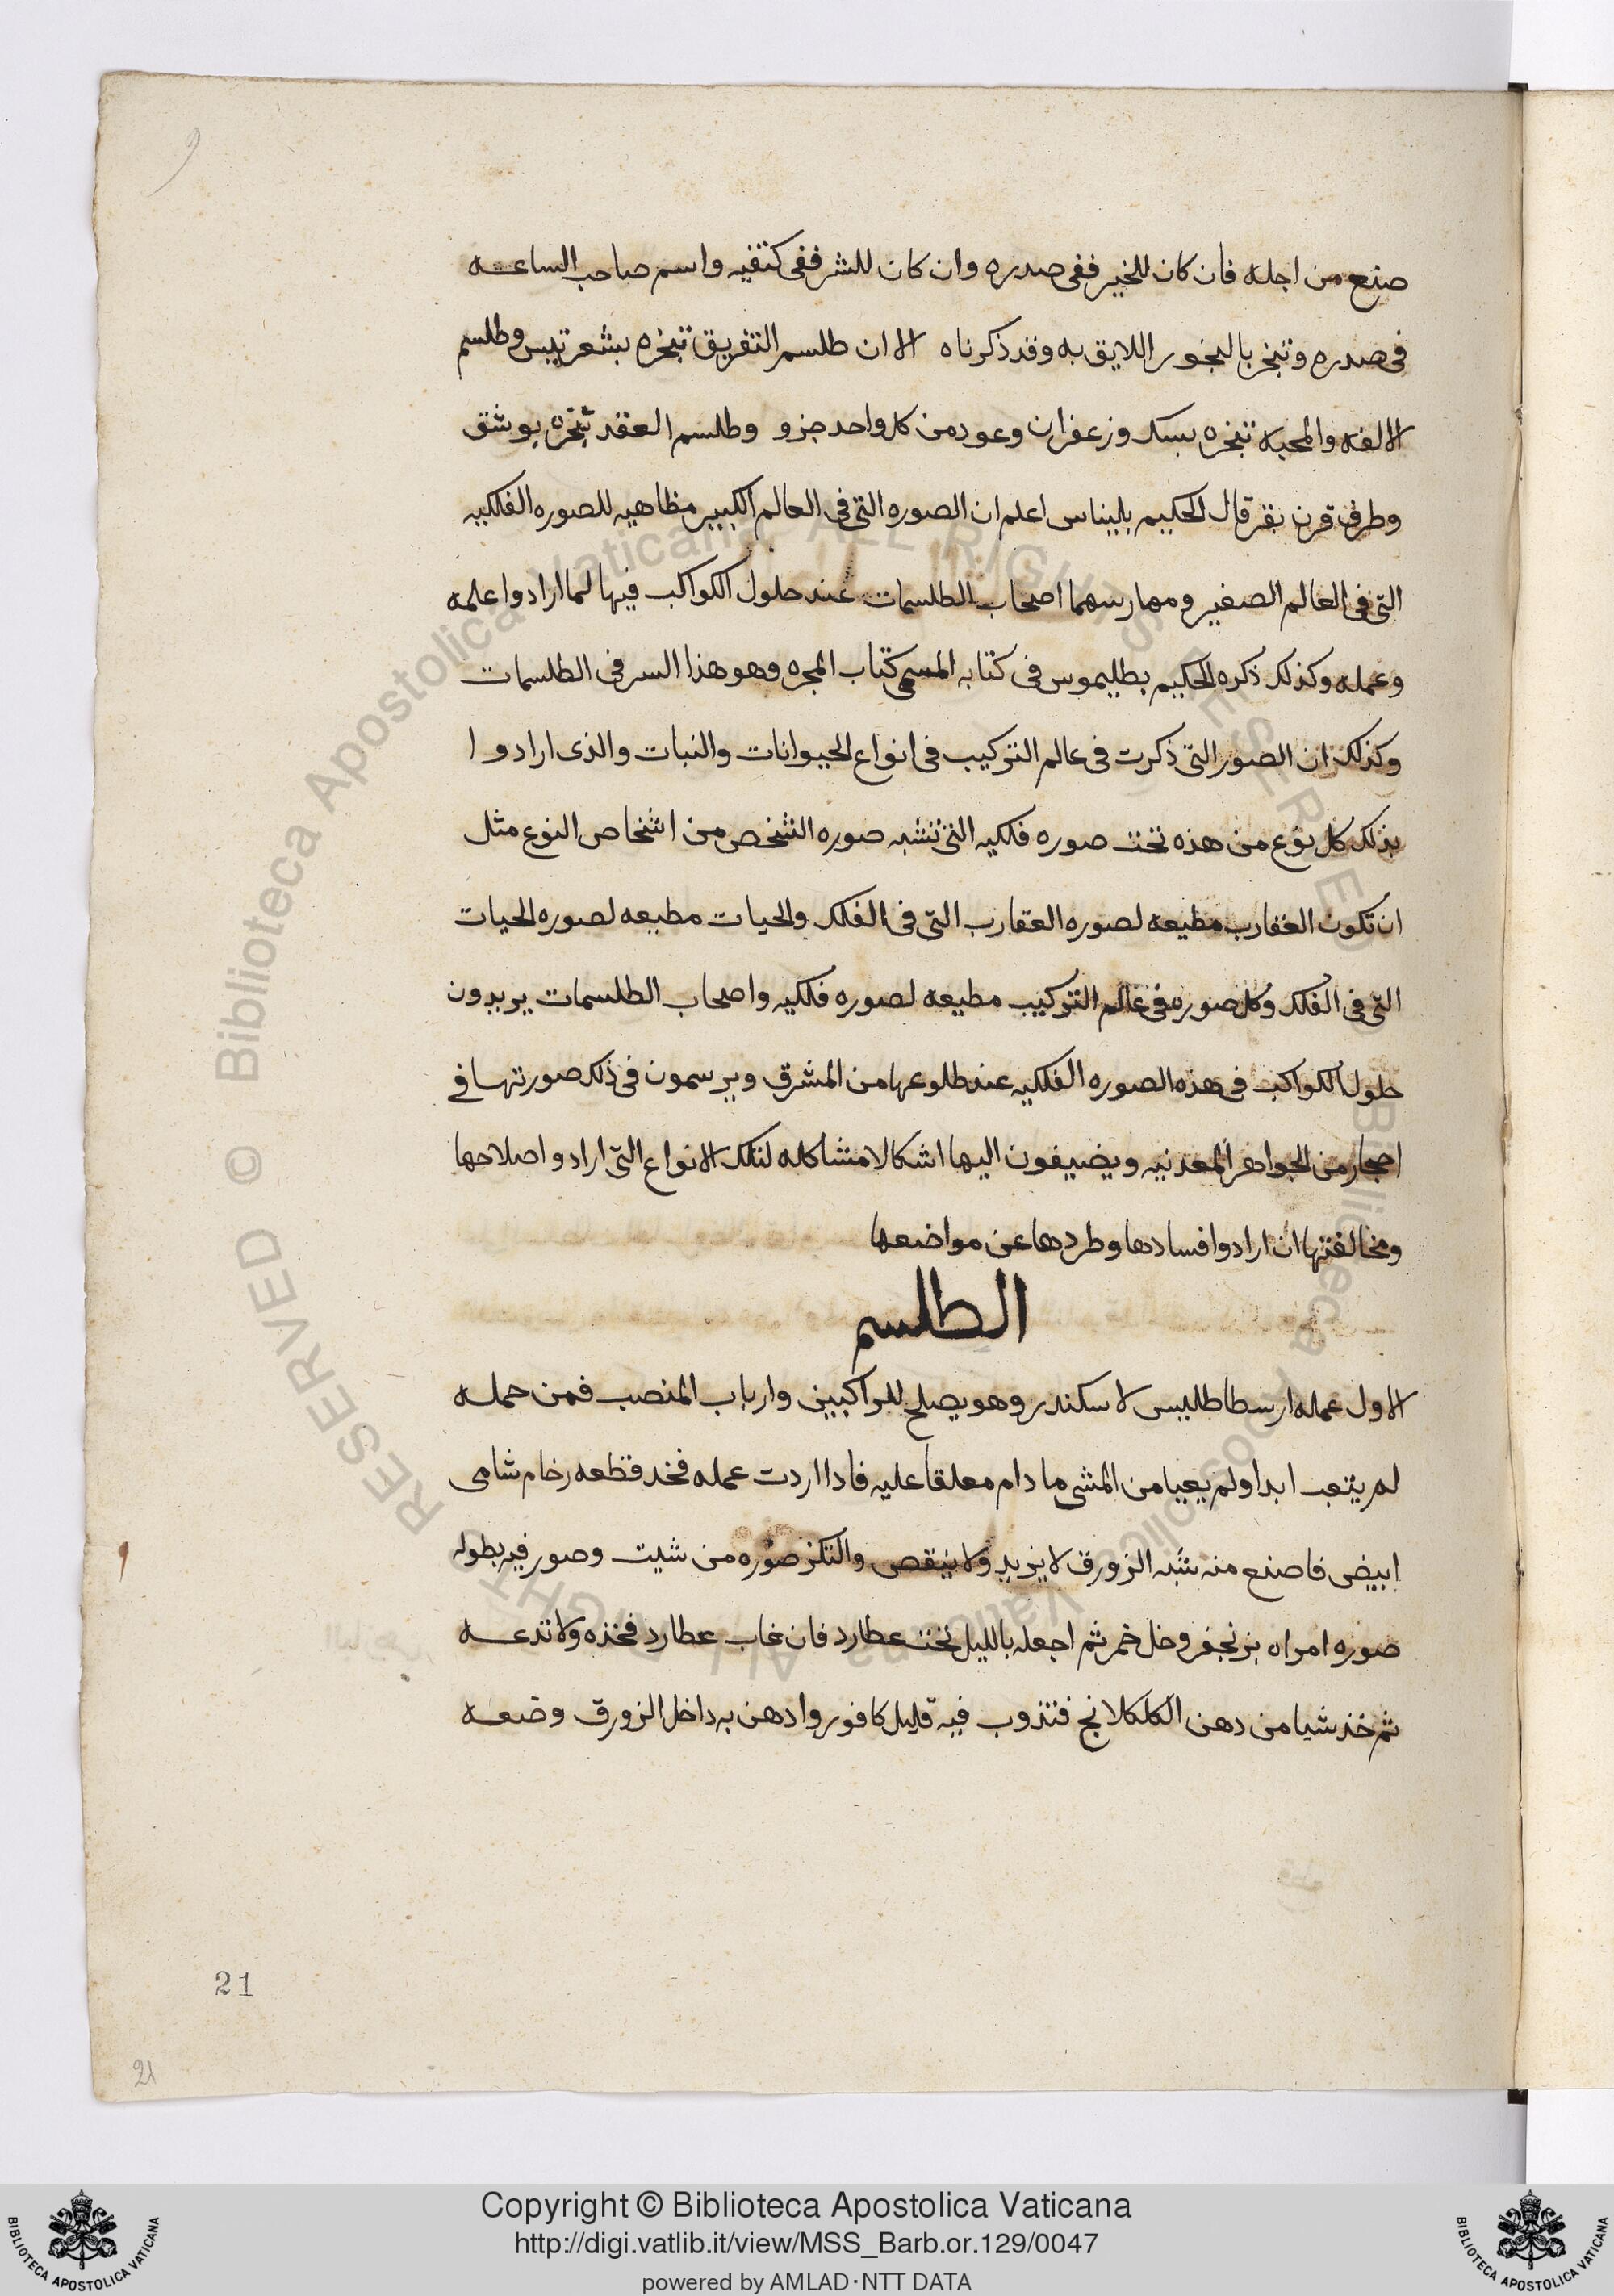 صنع من اجله فان كان للخير ففى صدره وان كان للشر ففى كتفيه واسم صاحب الساعه
فى صدره وتبخر بالبخور اللايق به وقد ذكرناه الا ان طلسم التفريق تبخره بشعر تيس وطلسم
الالفه والمحبه تبخره بسك وزعفران وعود من كل واحد جزو وطلسم العقد تبخره بوشق
وطرف قرن بقر قال الحكيم بليناس اعلم ان الصوره التى فى العالم الكبير مظاهيه للصوره الفلكيه
التى فى العالم الصغير ومهما رسهما اصحاب الطلسمات عند حلول الكواكب فيها لما ارادوا علمه
وعمله وكذلك ذكره الحكيم بطليموس فى كتابه المسمى كتاب المجره وهو هذا السر فى الطلسمات
وكذلك ان الصور التى ذكرت فى عالم التركيب فى انواع الحيوانات والنبات والذى ارادوا
بذلك كل نوع من هذه تحت صوره فلكيه التى تشبه صوره الشخص من اشخاص النوع مثل
ان تكون العقارب مطيعه لصوره العقارب التى فى الفلك والحيات مطيعه لصوره الحيات
التى فى الفلك وكل صوره فى عالم التركيب مطيعه لصوره فلكيه واصحاب الطلسمات يريدون
حلول الكواكب فى هذه الصوره الفلكيه عند طلوعها من المشرق ويرسمون فى ذلك صورتها فى
احجار من الجواهر المعدنيه ويضيفون اليها اشكالا مشاكله لتلك الانواع التى ارادو اصلاحها
ومخالفتها ان ارادوا افسادها وطردها عن مواضعها
الطلسم
الاول عمله ارسطاطليس لاسكندر وهو يصلح للراكبين وارباب المنصب فمن حمله
لم يتعب ابدا ولم يعيا من المشى ما دام معلقا عليه فادا اردت عمله فخد قطعه رخام شامى
ابيض فاصنع منه شبه الزورق لا يزيد ولا ينقص والتكز صوره من شيت وصور فيه بطوله
صوره امراه بزنجفر وخل خمر ثم اجعله بالليل تحت عطارد فان غاب عطارد فخذه ولا تدعه
ثم خذ شيا من دهن الكلكلانج فتذوب فيه قليل كافور وادهن به داخل الزورق وضعه
21
21
Copyright © Biblioteca Apostolica Vaticana
http://digi.vatlib.it/view/MSS_Barb.or.129/0047
powered by AMLAD·NTT DATA
BIBLIOTECA APOSTOLICA VATICANA
BIBLIOTECA APOSTOLICA VATICANA